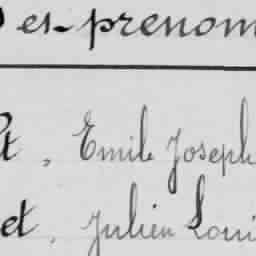 es prenom
t, Emile Joseph
et, Julien Loui